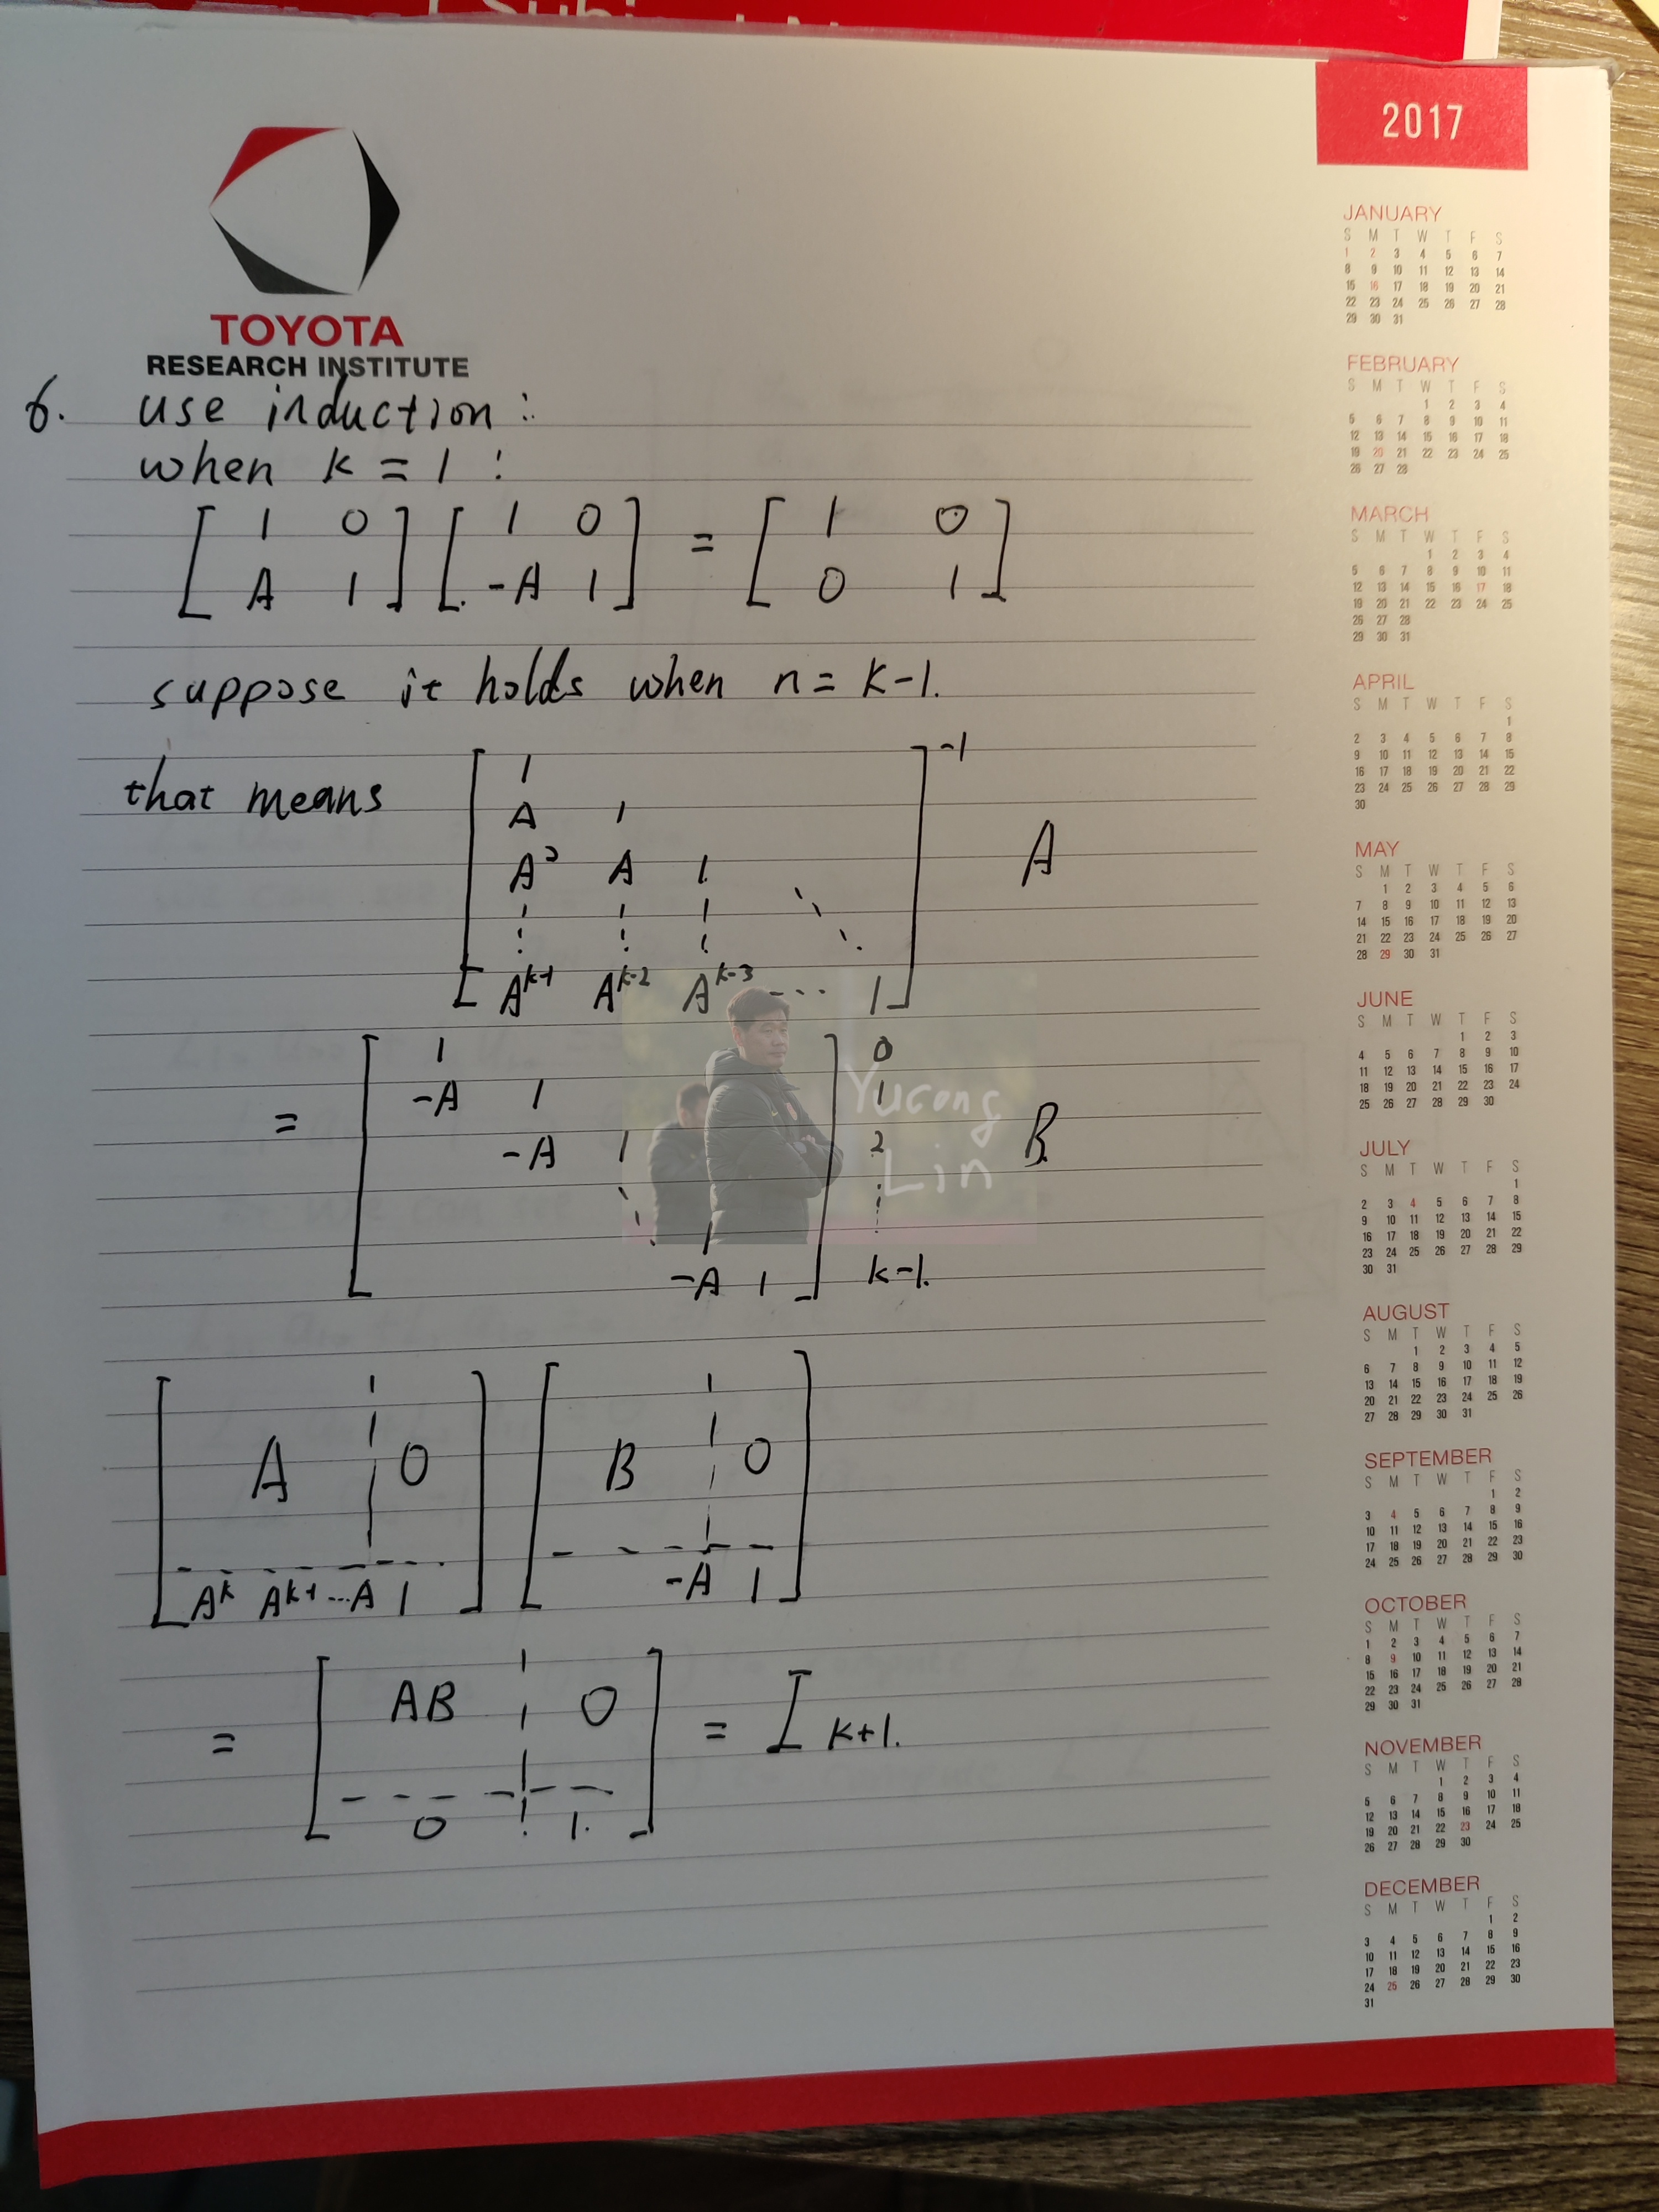 2017
TOYOTA
RESEARCH INSTITUTE
6. use induction:
when k = 1:
[ 1 0 ] [ 1 0 ] = [ 1 0 ]
[ A 1 ] [ -A 1 ] [ 0 1 ]
suppose it holds when n = k-1.
that means
[ 1 ]⁻¹
A 1
A² A 1 A
⋮ ⋮ ⋮ ⋱
A^k-1 A^k-2 A^k-3 --- 1
= [ 1 ] 0
-A 1 1
-A 1 2 B.
⋱ 1 ⋮
-A 1 k-1.
Yucong
Lin
[ A 0 ] [ B 0 ]
[ A^k A^k-1 ...A 1 ] [ -A 1 ]
= [ AB 0 ] = I k+1.
[ 0 1. ]
JANUARY
S M T W T F S
1 2 3 4 5 6 7
8 9 10 11 12 13 14
15 16 17 18 19 20 21
22 23 24 25 26 27 28
29 30 31
FEBRUARY
S M T W T F S
1 2 3 4
5 6 7 8 9 10 11
12 13 14 15 16 17 18
19 20 21 22 23 24 25
26 27 28
MARCH
S M T W T F S
1 2 3 4
5 6 7 8 9 10 11
12 13 14 15 16 17 18
19 20 21 22 23 24 25
26 27 28
29 30 31
APRIL
S M T W T F S
1
2 3 4 5 6 7 8
9 10 11 12 13 14 15
16 17 18 19 20 21 22
23 24 25 26 27 28 29
30
MAY
S M T W T F S
1 2 3 4 5 6
7 8 9 10 11 12 13
14 15 16 17 18 19 20
21 22 23 24 25 26 27
28 29 30 31
JUNE
S M T W T F S
1 2 3
4 5 6 7 8 9 10
11 12 13 14 15 16 17
18 19 20 21 22 23 24
25 26 27 28 29 30
JULY
S M T W T F S
1
2 3 4 5 6 7 8
9 10 11 12 13 14 15
16 17 18 19 20 21 22
23 24 25 26 27 28 29
30 31
AUGUST
S M T W T F S
1 2 3 4 5
6 7 8 9 10 11 12
13 14 15 16 17 18 19
20 21 22 23 24 25 26
27 28 29 30 31
SEPTEMBER
S M T W T F S
1 2
3 4 5 6 7 8 9
10 11 12 13 14 15 16
17 18 19 20 21 22 23
24 25 26 27 28 29 30
OCTOBER
S M T W T F S
1 2 3 4 5 6 7
8 9 10 11 12 13 14
15 16 17 18 19 20 21
22 23 24 25 26 27 28
29 30 31
NOVEMBER
S M T W T F S
1 2 3 4
5 6 7 8 9 10 11
12 13 14 15 16 17 18
19 20 21 22 23 24 25
26 27 28 29 30
DECEMBER
S M T W T F S
1 2
3 4 5 6 7 8 9
10 11 12 13 14 15 16
17 18 19 20 21 22 23
24 25 26 27 28 29 30
31